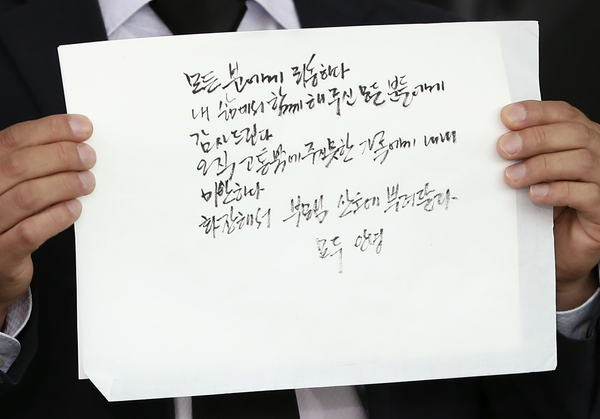 모든 분에게 죄송하다
내 삶에서 함께 해주신 모든 분들에게
감사드린다
오직 고통밖에 주지못한 가족에게 내내
미안하다
화장해서 부모님 산소에 뿌려달라
모두 안녕